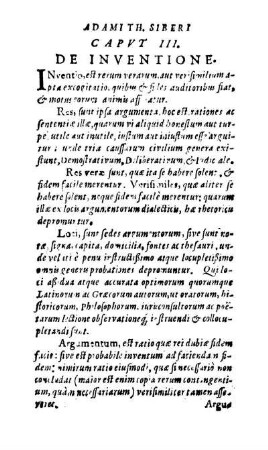 ADAMI TH. SIBERI
CAPVT III.
DE INVENTIONE.
INventio, est rerum verarum, aut verisimilium a-
pta excogitatio, quibus & fides auditoribus fiat,
& motus eorum animis afferatur.
Res, sunt ipsa argumenta, hoc est, rationes ac
sententiæ illæ, quarum vi aliquid honestum aut tur-
pe, utile aut inutile, justum aut injustum esse argui-
tur: unde tria caussarum civilium genera exi-
stunt, Demonstrativum, Deliberativum, & Judiciale.
Res veræ sunt, quæ ita se habere solent, &
fidem facile merentur. Verisimiles, quæ aliter se
habere solent, neque fidem facile merentur; quarum
illæ ex locis argumentorum dialecticis, hæ rhetoricis
depromuntur.
Loci, sunt sedes argumentorum, sive sunt no-
tæ, signa, capita, domicilia, fontes ac thesauri, un-
de velut è penu instructissimo atque locupletissimo
omnis generis probationes depromuntur. Qui lo-
ci assidua atque accurata optimorum quorumque
Latinorum ac Græcorum autorum, ut oratorum, hi-
storicorum, philosophorum, jurisconsultorum ac poë-
tarum lectione observationeque, instruendi & collo-
cupletandi sunt.
Argumentum, est ratio quæ rei dubiæ fidem
facit: sive est probabile inventum ad faciendam fi-
dem: nimirum ratio ejusmodi, quæ si necessario non
concludat (major est enim copia rerum contingenti-
um, quàm necessariarum) verisimiliter tamen asse-
veret.
Argu-